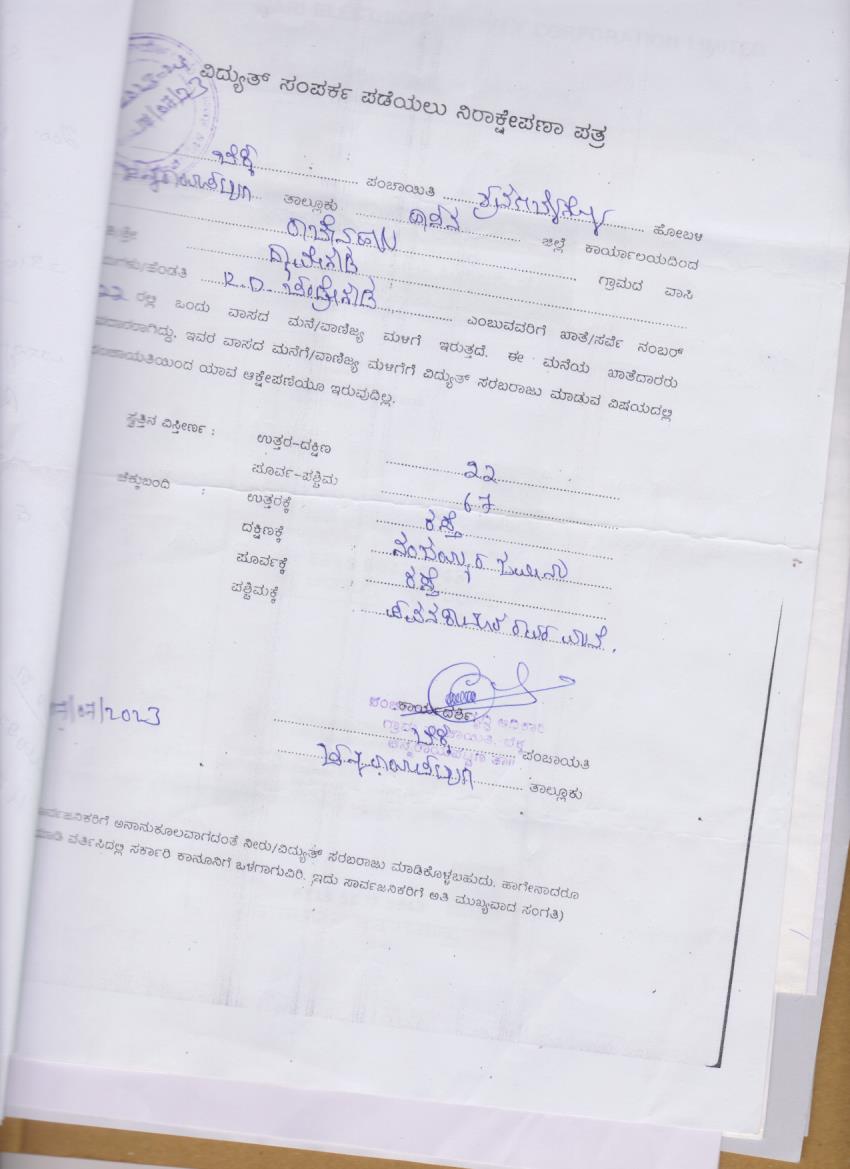 ವಿದ್ಯುತ್ ಸಂಪರ್ಕ ಪಡೆಯಲು ನಿರಾಕ್ಷೇಪಣಾ ಪತ್ರ
ಬೆಕ್ಕ ಪಂಚಾಯಿತಿ ಶ್ರವಣಬೆಳಗೊಳ ಹೋಬಳಿ
ಚನ್ನರಾಯಪಟ್ಟಣ ತಾಲ್ಲೂಕು ಹಾಸನ ಜಿಲ್ಲೆ ಕಾರ್ಯಾಲಯದಿಂದ
ರಾಚೇನಹಳ್ಳಿ ಗ್ರಾಮದ ವಾಸಿ
ದ್ಯಾವೇಗೌಡ
ಮಗಳು/ಹೆಂಡತಿ R.D. ಚಂದ್ರೇಗೌಡ ಎಂಬುವವರಿಗೆ ಖಾತೆ/ಸರ್ವೆ ನಂಬರ್
22 ರಲ್ಲಿ ಒಂದು ವಾಸದ ಮನೆ/ವಾಣಿಜ್ಯ ಮಳಗೆ ಇರುತ್ತದೆ. ಈ ಮನೆಯ ಖಾತೆದಾರರು
ಇವರ ವಾಸದ ಮನೆಗೆ/ವಾಣಿಜ್ಯ ಮಳಗೆಗೆ ವಿದ್ಯುತ್ ಸರಬರಾಜು ಮಾಡುವ ವಿಷಯದಲ್ಲಿ
ಪಂಚಾಯತಿಯಿಂದ ಯಾವ ಆಕ್ಷೇಪಣೆಯೂ ಇರುವುದಿಲ್ಲ.
ಸ್ವತ್ತಿನ ವಿಸ್ತೀರ್ಣ : ಉತ್ತರ-ದಕ್ಷಿಣ 22
ಪೂರ್ವ-ಪಶ್ಚಿಮ 67
ಚೆಕ್ಕುಬಂದಿ : ಉತ್ತರಕ್ಕೆ ರಸ್ತೆ
ದಕ್ಷಿಣಕ್ಕೆ
ಪೂರ್ವಕ್ಕೆ ರಸ್ತೆ
ಪಶ್ಚಿಮಕ್ಕೆ
ಕಾರ್ಯದರ್ಶಿ
/07/2023
ಬೆಕ್ಕ ಪಂಚಾಯತಿ
ಚನ್ನರಾಯಪಟ್ಟಣ ತಾಲ್ಲೂಕು
ಸಾರ್ವಜನಿಕರಿಗೆ ಅನಾನುಕೂಲವಾಗದಂತೆ ನೀರು/ವಿದ್ಯುತ್ ಸರಬರಾಜು ಮಾಡಿಕೊಳ್ಳಬಹುದು. ಹಾಗೇನಾದರೂ
ಮಾಡಿ ವರ್ತಿಸಿದಲ್ಲಿ ಸರ್ಕಾರಿ ಕಾನೂನಿಗೆ ಒಳಗಾಗುವಿರಿ. ಇದು ಸಾರ್ವಜನಿಕರಿಗೆ ಅತಿ ಮುಖ್ಯವಾದ ಸಂಗತಿ)